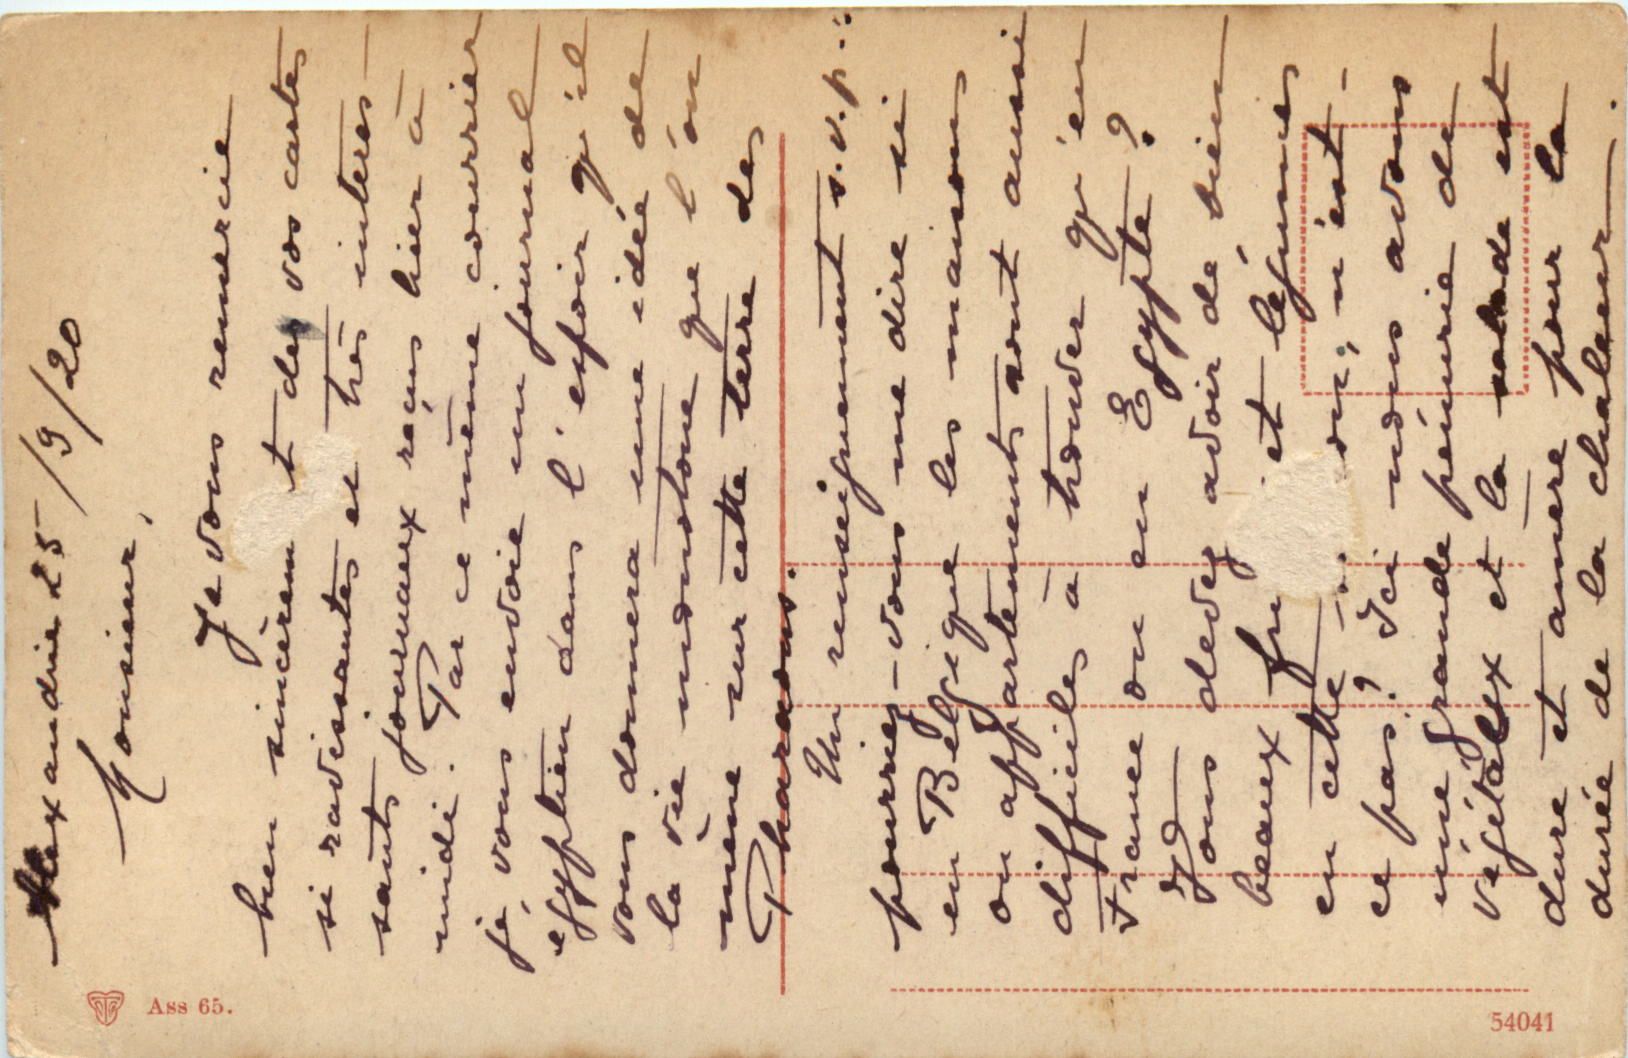 Alexandrie 25/9/20
Monsieur,
Je vous remercie
bien sincèrem t des vos cartes
si ravissantes et très intéres-
sants journaux reçus hier à
midi. Par ce même courrier
je vous envoie un journal
egyptien dans l'espoir qu'il
vous donnera une idée de
la vie monotone que l'on
mène sur cette terre des
Pharaons.
Un renseignement s.v.p.:
pourriez-vous me dire si
en Belgique les maisons
ou appartements sont aussi
difficiles à trouver qu'en
France ou en Egypte?
Vous devez avoir de bien
beaux fru et légumes
en cette son; n'est-
ce pas? Ici nous avons
une grande pénurie de
végétaux et la salade est
dure et amère pour la
durée de la chaleur.
Ass 65.
54041